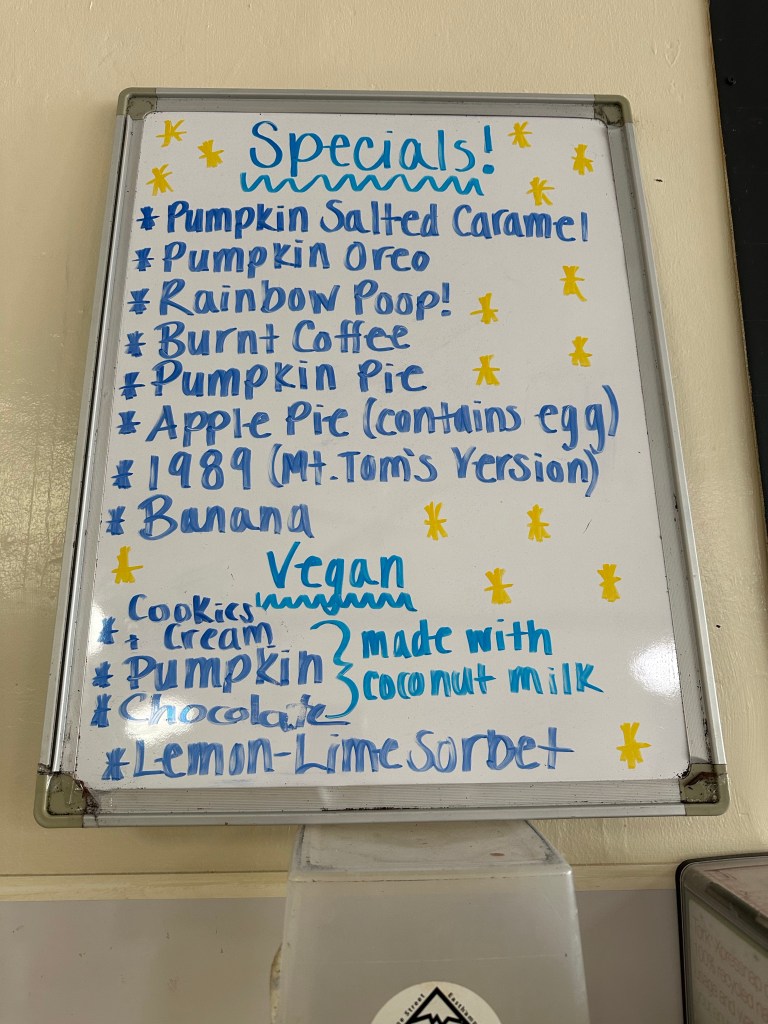 Specials!
* Pumpkin Salted Caramel
* Pumpkin Oreo
* Rainbow Poop!
* Burnt Coffee
* Pumpkin Pie
* Apple Pie (contains egg)
* 1989 (Mt. Tom's Version)
* Banana
Vegan
* Cookies
+ Cream
* Pumpkin
* Chocolate
} made with
coconut milk
* Lemon-Lime Sorbet